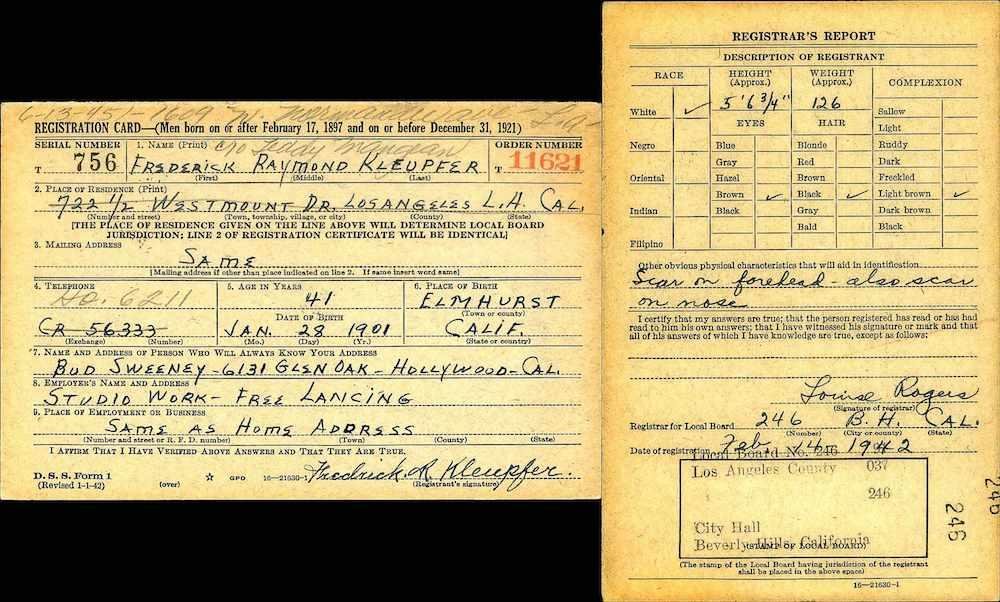 6-13-45 - 1609 N. Normandie Ave L.A.
REGISTRATION CARD—(Men born on or after February 17, 1897 and on or before December 31, 1921)
SERIAL NUMBER
T 756
1. NAME (Print) c/o Teddy Mangean
FREDERICK RAYMOND KLEUPFER
(First) (Middle) (Last)
ORDER NUMBER
T 11621
2. PLACE OF RESIDENCE (Print)
722 1/2 WESTMOUNT DR. LOS ANGELES L.A. CAL.
(Number and street) (Town, township, village, or city) (County) (State)
[THE PLACE OF RESIDENCE GIVEN ON THE LINE ABOVE WILL DETERMINE LOCAL BOARD
JURISDICTION; LINE 2 OF REGISTRATION CERTIFICATE WILL BE IDENTICAL]
3. MAILING ADDRESS
SAME
[Mailing address if other than place indicated on line 2. If same insert word same]
4. TELEPHONE
Ho. 6211
CR 56333
(Exchange) (Number)
5. AGE IN YEARS
41
DATE OF BIRTH
JAN. 28 1901
(Mo.) (Day) (Yr.)
6. PLACE OF BIRTH
ELMHURST
(Town or county)
CALIF.
(State or country)
7. NAME AND ADDRESS OF PERSON WHO WILL ALWAYS KNOW YOUR ADDRESS
BUD SWEENEY - 6131 GLEN OAK - HOLLYWOOD - CAL.
8. EMPLOYER'S NAME AND ADDRESS
STUDIO WORK - FREE LANCING
9. PLACE OF EMPLOYMENT OR BUSINESS
SAME AS HOME ADDRESS
(Number and street or R. F. D. number) (Town) (County) (State)
I AFFIRM THAT I HAVE VERIFIED ABOVE ANSWERS AND THAT THEY ARE TRUE.
D. S. S. Form 1
(Revised 1-1-42) (over) ☆ GPO 16—21630-1
Fredrick. R. Kleupfer.
(Registrant's signature)
REGISTRAR'S REPORT
DESCRIPTION OF REGISTRANT
RACE
White ✓
Negro
Oriental
Indian
Filipino
HEIGHT
(Approx.)
5' 6 3/4"
WEIGHT
(Approx.)
126
EYES
Blue
Gray
Hazel
Brown ✓
Black
HAIR
Blonde
Red
Brown
Black ✓
Gray
Bald
COMPLEXION
Sallow
Light
Ruddy
Dark
Freckled
Light brown ✓
Dark brown
Black
Other obvious physical characteristics that will aid in identification
Scar on forehead - also scar
on nose
I certify that my answers are true; that the person registered has read or has had
read to him his own answers; that I have witnessed his signature or mark and that
all of his answers of which I have knowledge are true, except as follows:
Louise Rogers
(Signature of registrar)
Registrar for Local Board 246 B. H. CAL.
(Number) (City or county) (State)
Date of registration Feb. 14 1942
Local Board No. 246 37
Los Angeles County 037
246
City Hall
Beverly Hills, California
(STAMP OF LOCAL BOARD)
(The stamp of the Local Board having jurisdiction of the registrant
shall be placed in the above space)
16—21630-1
246
246